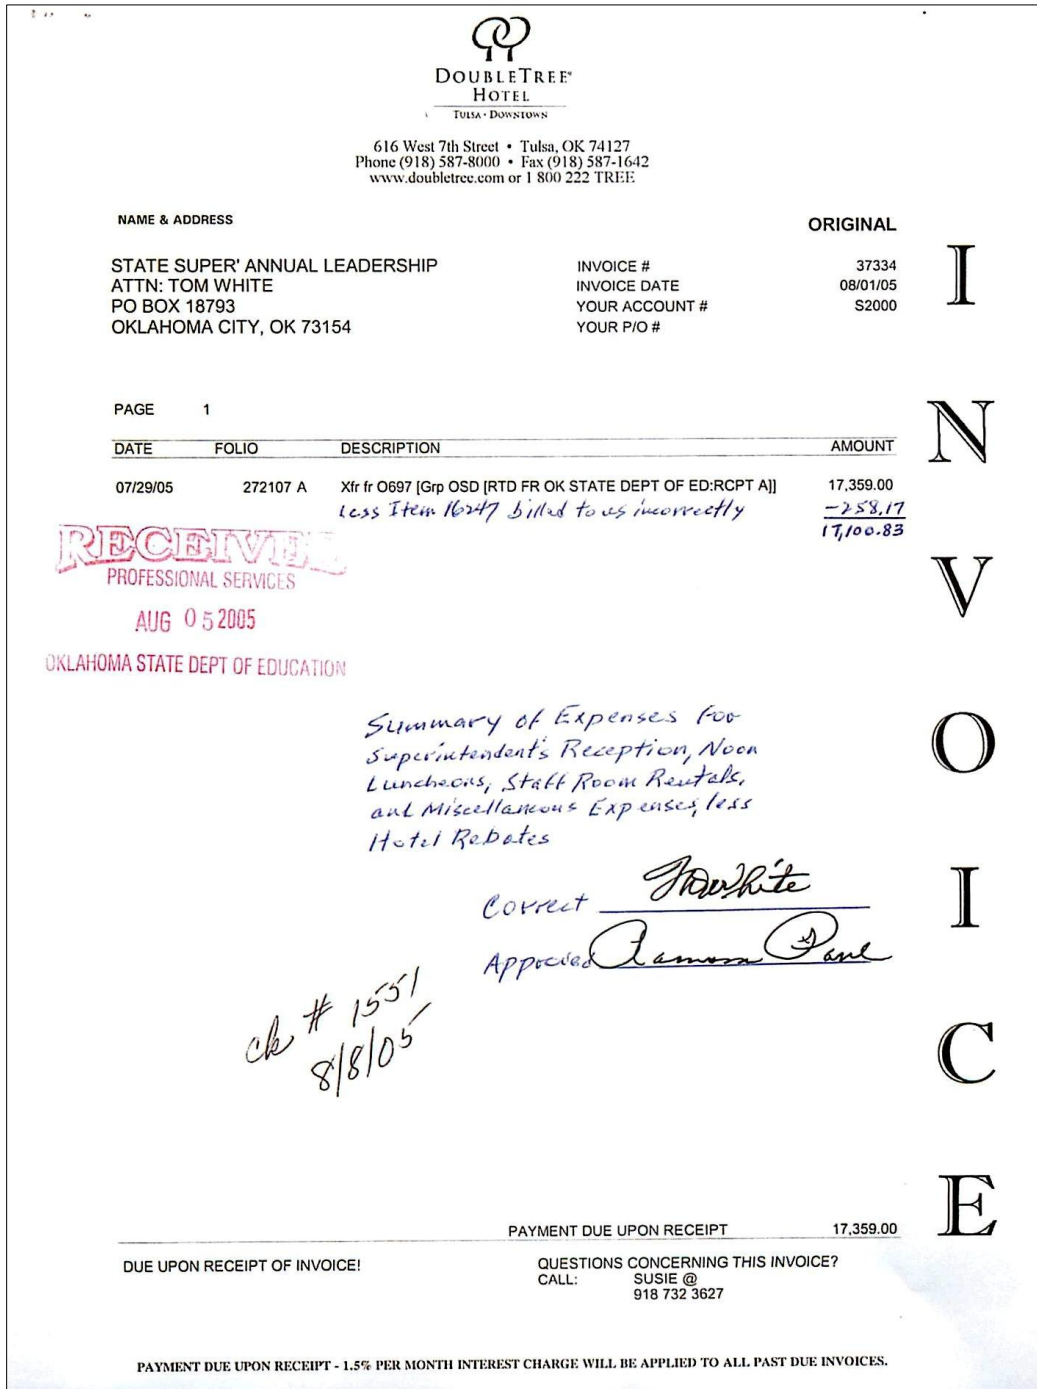 DOUBLETREE®
HOTEL
TULSA • DOWNTOWN
616 West 7th Street • Tulsa, OK 74127
Phone (918) 587-8000 • Fax (918) 587-1642
www.doubletree.com or 1 800 222 TREE
NAME & ADDRESS
ORIGINAL
STATE SUPER' ANNUAL LEADERSHIP
ATTN: TOM WHITE
PO BOX 18793
OKLAHOMA CITY, OK 73154
INVOICE # 37334
INVOICE DATE 08/01/05
YOUR ACCOUNT # S2000
YOUR P/O #
INVOICE
PAGE 1
DATE FOLIO DESCRIPTION AMOUNT
07/29/05 272107 A Xfr fr O697 [Grp OSD [RTD FR OK STATE DEPT OF ED:RCPT A]] 17,359.00
Less Item 16247 billed to us incorrectly -258.17
17,100.83
RECEIVED
PROFESSIONAL SERVICES
AUG 05 2005
OKLAHOMA STATE DEPT OF EDUCATION
Summary of Expenses for
Superintendent's Reception, Noon
Luncheons, Staff Room Rentals,
and Miscellaneous Expenses, less
Hotel Rebates
Correct TDWhite
Approved Ramona Paul
ck # 1551
8/8/05
PAYMENT DUE UPON RECEIPT 17,359.00
DUE UPON RECEIPT OF INVOICE!
QUESTIONS CONCERNING THIS INVOICE?
CALL: SUSIE @
918 732 3627
PAYMENT DUE UPON RECEIPT - 1.5% PER MONTH INTEREST CHARGE WILL BE APPLIED TO ALL PAST DUE INVOICES.